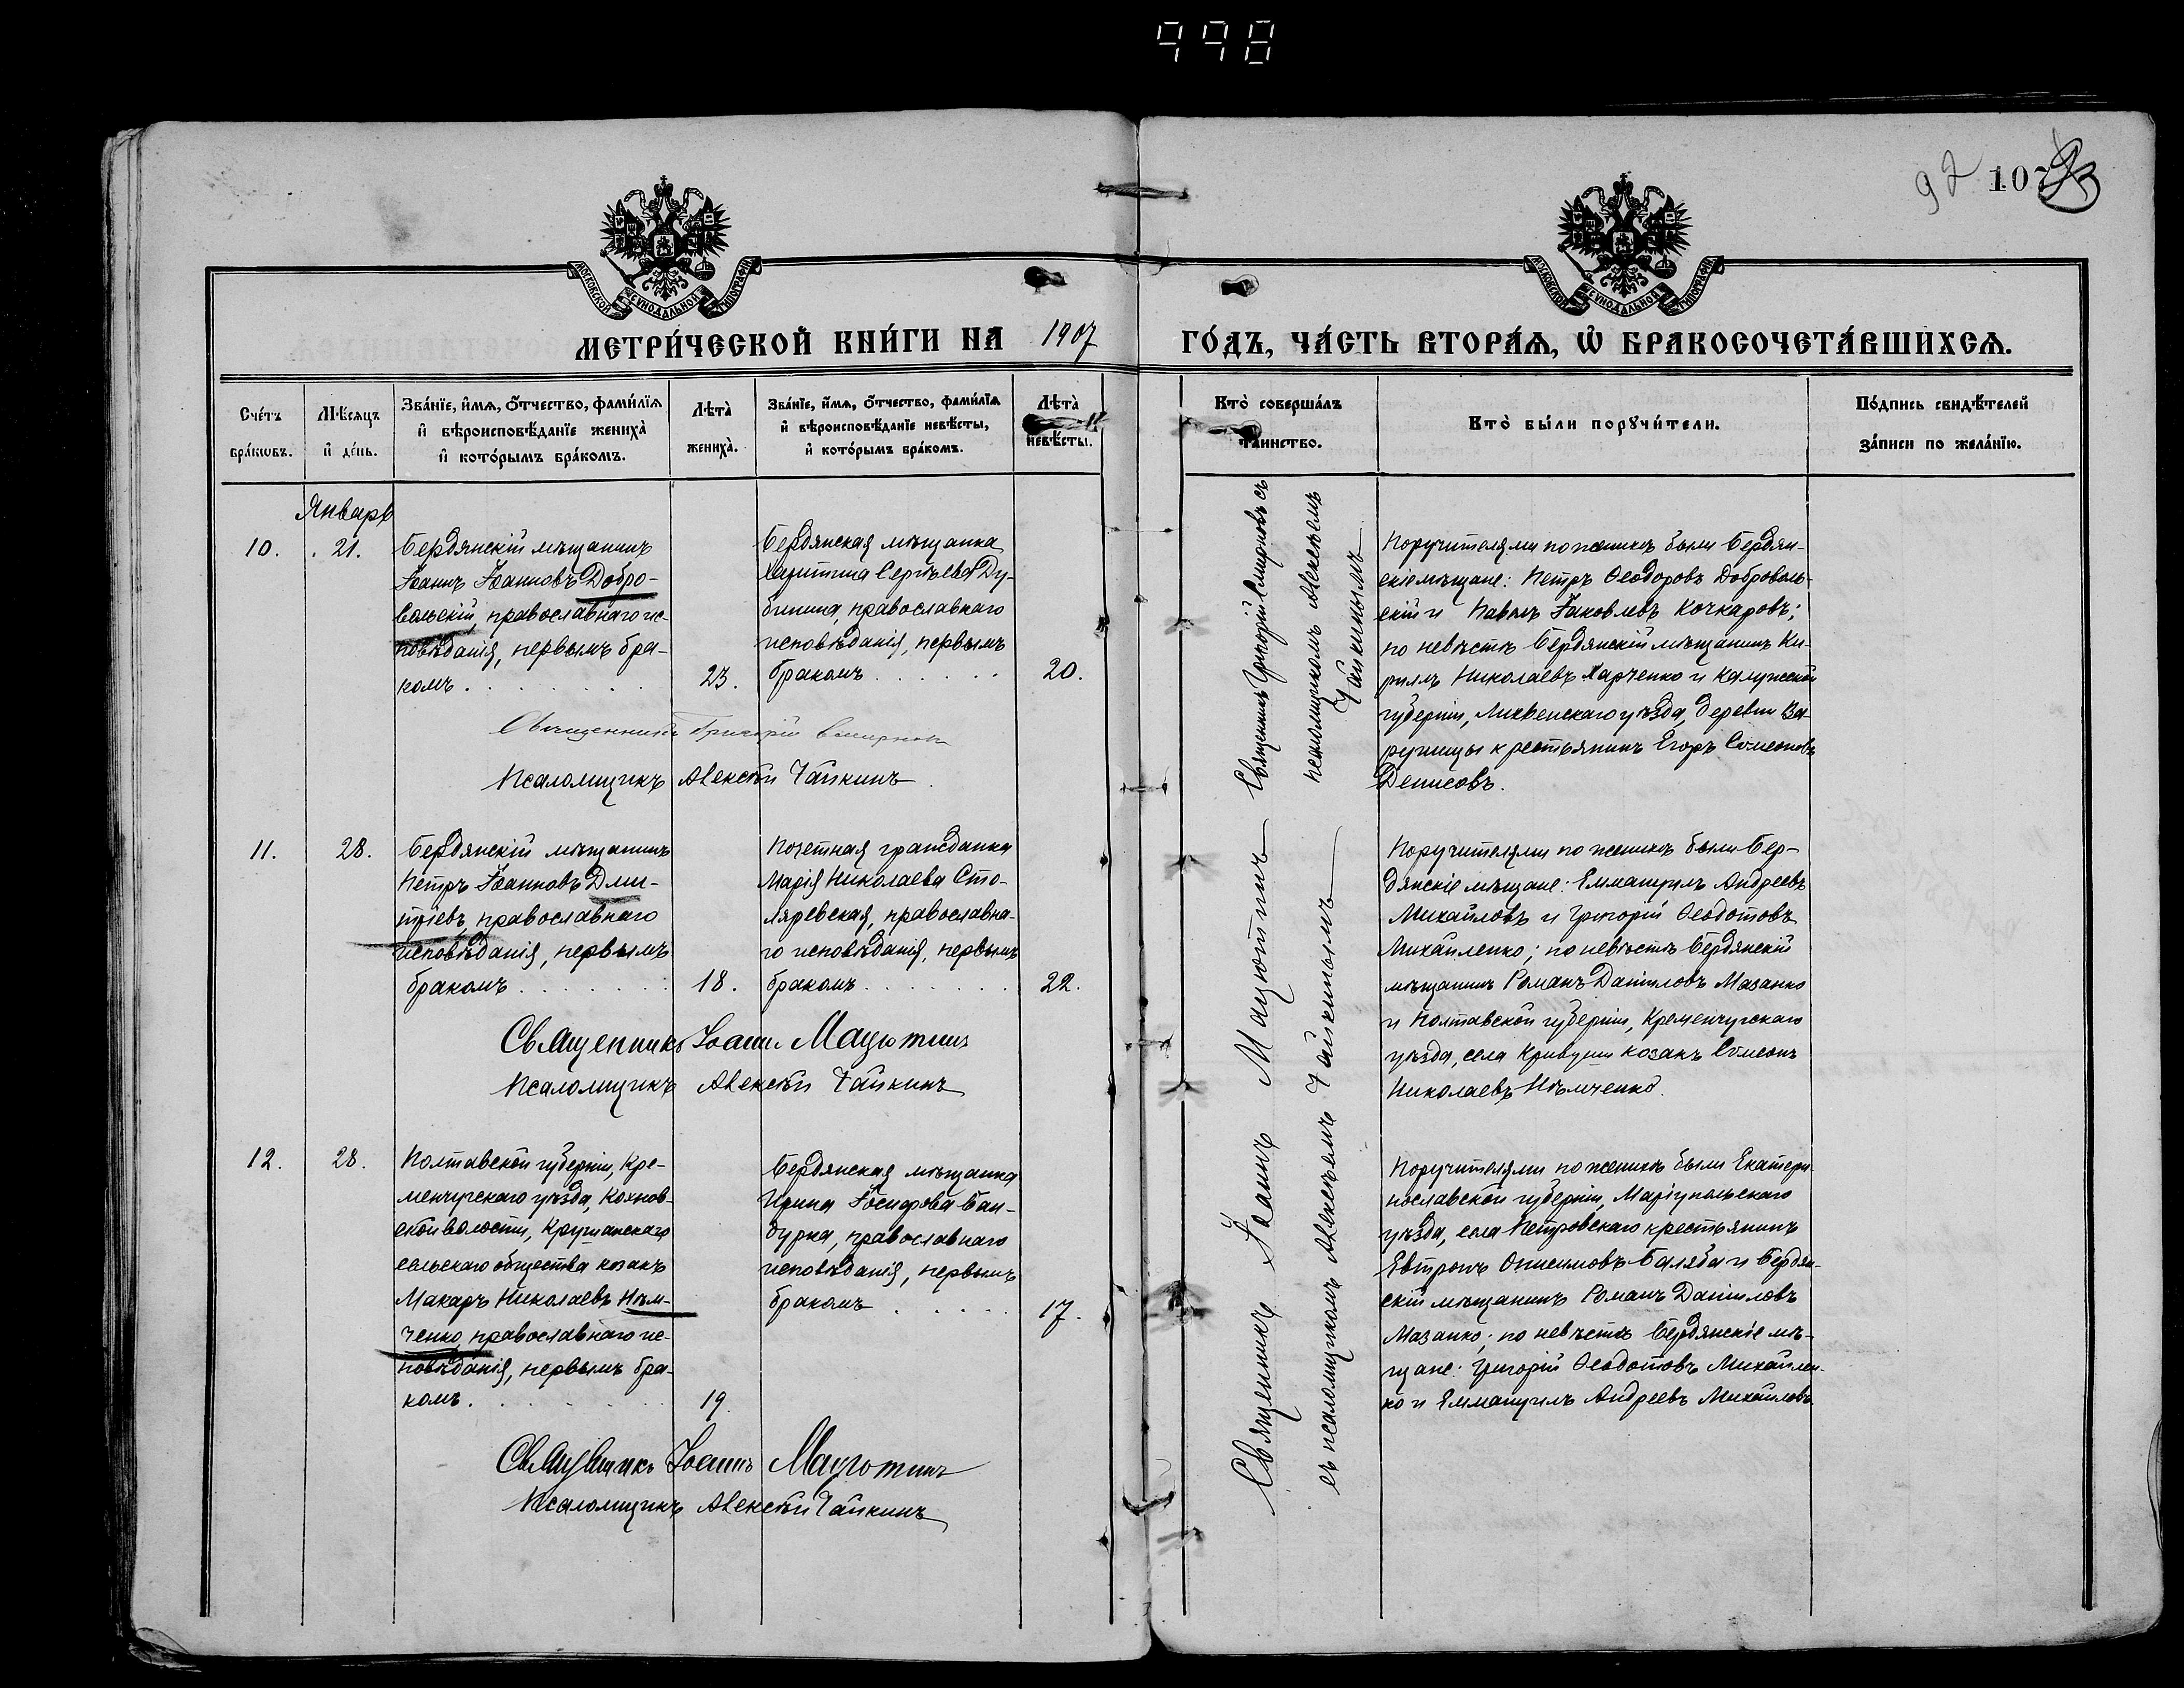 998
92 107
МОСКОВСКОЙ СѴНОДАЛЬНОЙ ТИПОГРАФІИ
МОСКОВСКОЙ СѴНОДАЛЬНОЙ ТИПОГРАФІИ
МЕТРИ́ЧЕСКОЙ КНИ́ГИ НА 1907 ГО́ДЪ, ЧА́СТЬ ВТОРА́Ѧ, Ѡ҆ БРАКОСОЧЕТА́ВШИХСѦ.
Сче́тъ
бра́кѡвъ.
Мѣ́сяцъ
и҆ де́нь.
Зва́нїе, и҆́мѧ, ѻ҆́тчество, фами́лїѧ
и҆ вѣроисповѣ́данїе жениха̀
и҆ кото́рымъ бра́комъ.
Лѣта̀
жениха̀.
Зва́нїе, и҆́мѧ, ѻ҆́тчество, фами́лїѧ
и҆ вѣроисповѣ́данїе невѣ́сты,
и҆ кото́рымъ бра́комъ.
Лѣта̀
невѣ́сты.
Кто̀ соверша́лъ
та́инство.
Кто̀ бы́ли порꙋчи́тели.
По́дпись свидѣ́телей
за́писи по жела́нїю.
Январь
10.
21.
Бердянскій мѣщанинъ
Іоаннъ Іоанновъ Добро-
вольскій, православнаго ис-
повѣданія, первымъ бра-
комъ.
23.
Бердянская мѣщанка
Харитина Сергѣева Ду-
бинина, православнаго
исповѣданія, первымъ
бракомъ
20.
Священникъ Григорій Смирновъ съ
псаломщикомъ Алексѣемъ
Чайкинымъ
Поручителями по женихѣ были Бердян-
скіе мѣщане: Петръ Ѳеодоровъ Доброволь-
скій и Павелъ Іаковлевъ Кочкаровъ;
по невѣстѣ Бердянскій мѣщанинъ Ки-
риллъ Николаевъ Харченко и Калужской
губерніи, Лихвенскаго уѣзда, деревни
крестьянинъ Егоръ Симеоновъ
Денисовъ.
Священникъ Григорій Смирновъ
Псаломщикъ Алексѣй Чайкинъ
11.
28.
Бердянскій мѣщанинъ
Петръ Іоанновъ Дми-
тріевъ, православнаго
исповѣданія, первымъ
бракомъ
18.
Почетная гражданка
Марія Николаева Сто-
ляревская, православна-
го исповѣданія, первымъ
бракомъ
22.
Священникъ Іоаннъ Мацютинъ
съ псаломщикомъ Алексѣемъ Чайкинымъ
Поручителями по женихѣ были Бер-
дянскіе мѣщане: Еммануилъ Андреевъ
Михайловъ и Григорій Ѳеодотовъ
Михайленко; по невѣстѣ Бердянскій
мѣщанинъ Романъ Даніиловъ Мазанко
и Полтавской губерніи, Кременчугскаго
уѣзда, села Кривуши козакъ Симеонъ
Николаевъ Нѣмченко.
Священникъ Іоаннъ Мацютинъ
Псаломщикъ Алексѣй Чайкинъ
12.
28.
Полтавской губерніи, Кре-
менчугскаго уѣзда, Кохнов-
ской волости,
сельскаго общества козакъ
Макаръ Николаевъ Нѣм-
ченко, православнаго ис-
повѣданія, первымъ бра-
комъ.
19.
Бердянская мѣщанка
Ирина Іосифова Бан-
дурка, православнаго
исповѣданія, первымъ
бракомъ
17.
Поручителями по женихѣ были Екатери-
нославской губерніи, Маріупольскаго
уѣзда, села Петровскаго крестьянинъ
Евтропъ Онисимовъ Баляба и Бердян-
скій мѣщанинъ Романъ Даніиловъ
Мазанко; по невѣстѣ Бердянскіе мѣ-
щане: Григорій Ѳеодотовъ Михайлен-
ко и Еммануилъ Андреевъ Михайловъ.
Священникъ Іоаннъ Мацютинъ
Псаломщикъ Алексѣй Чайкинъ